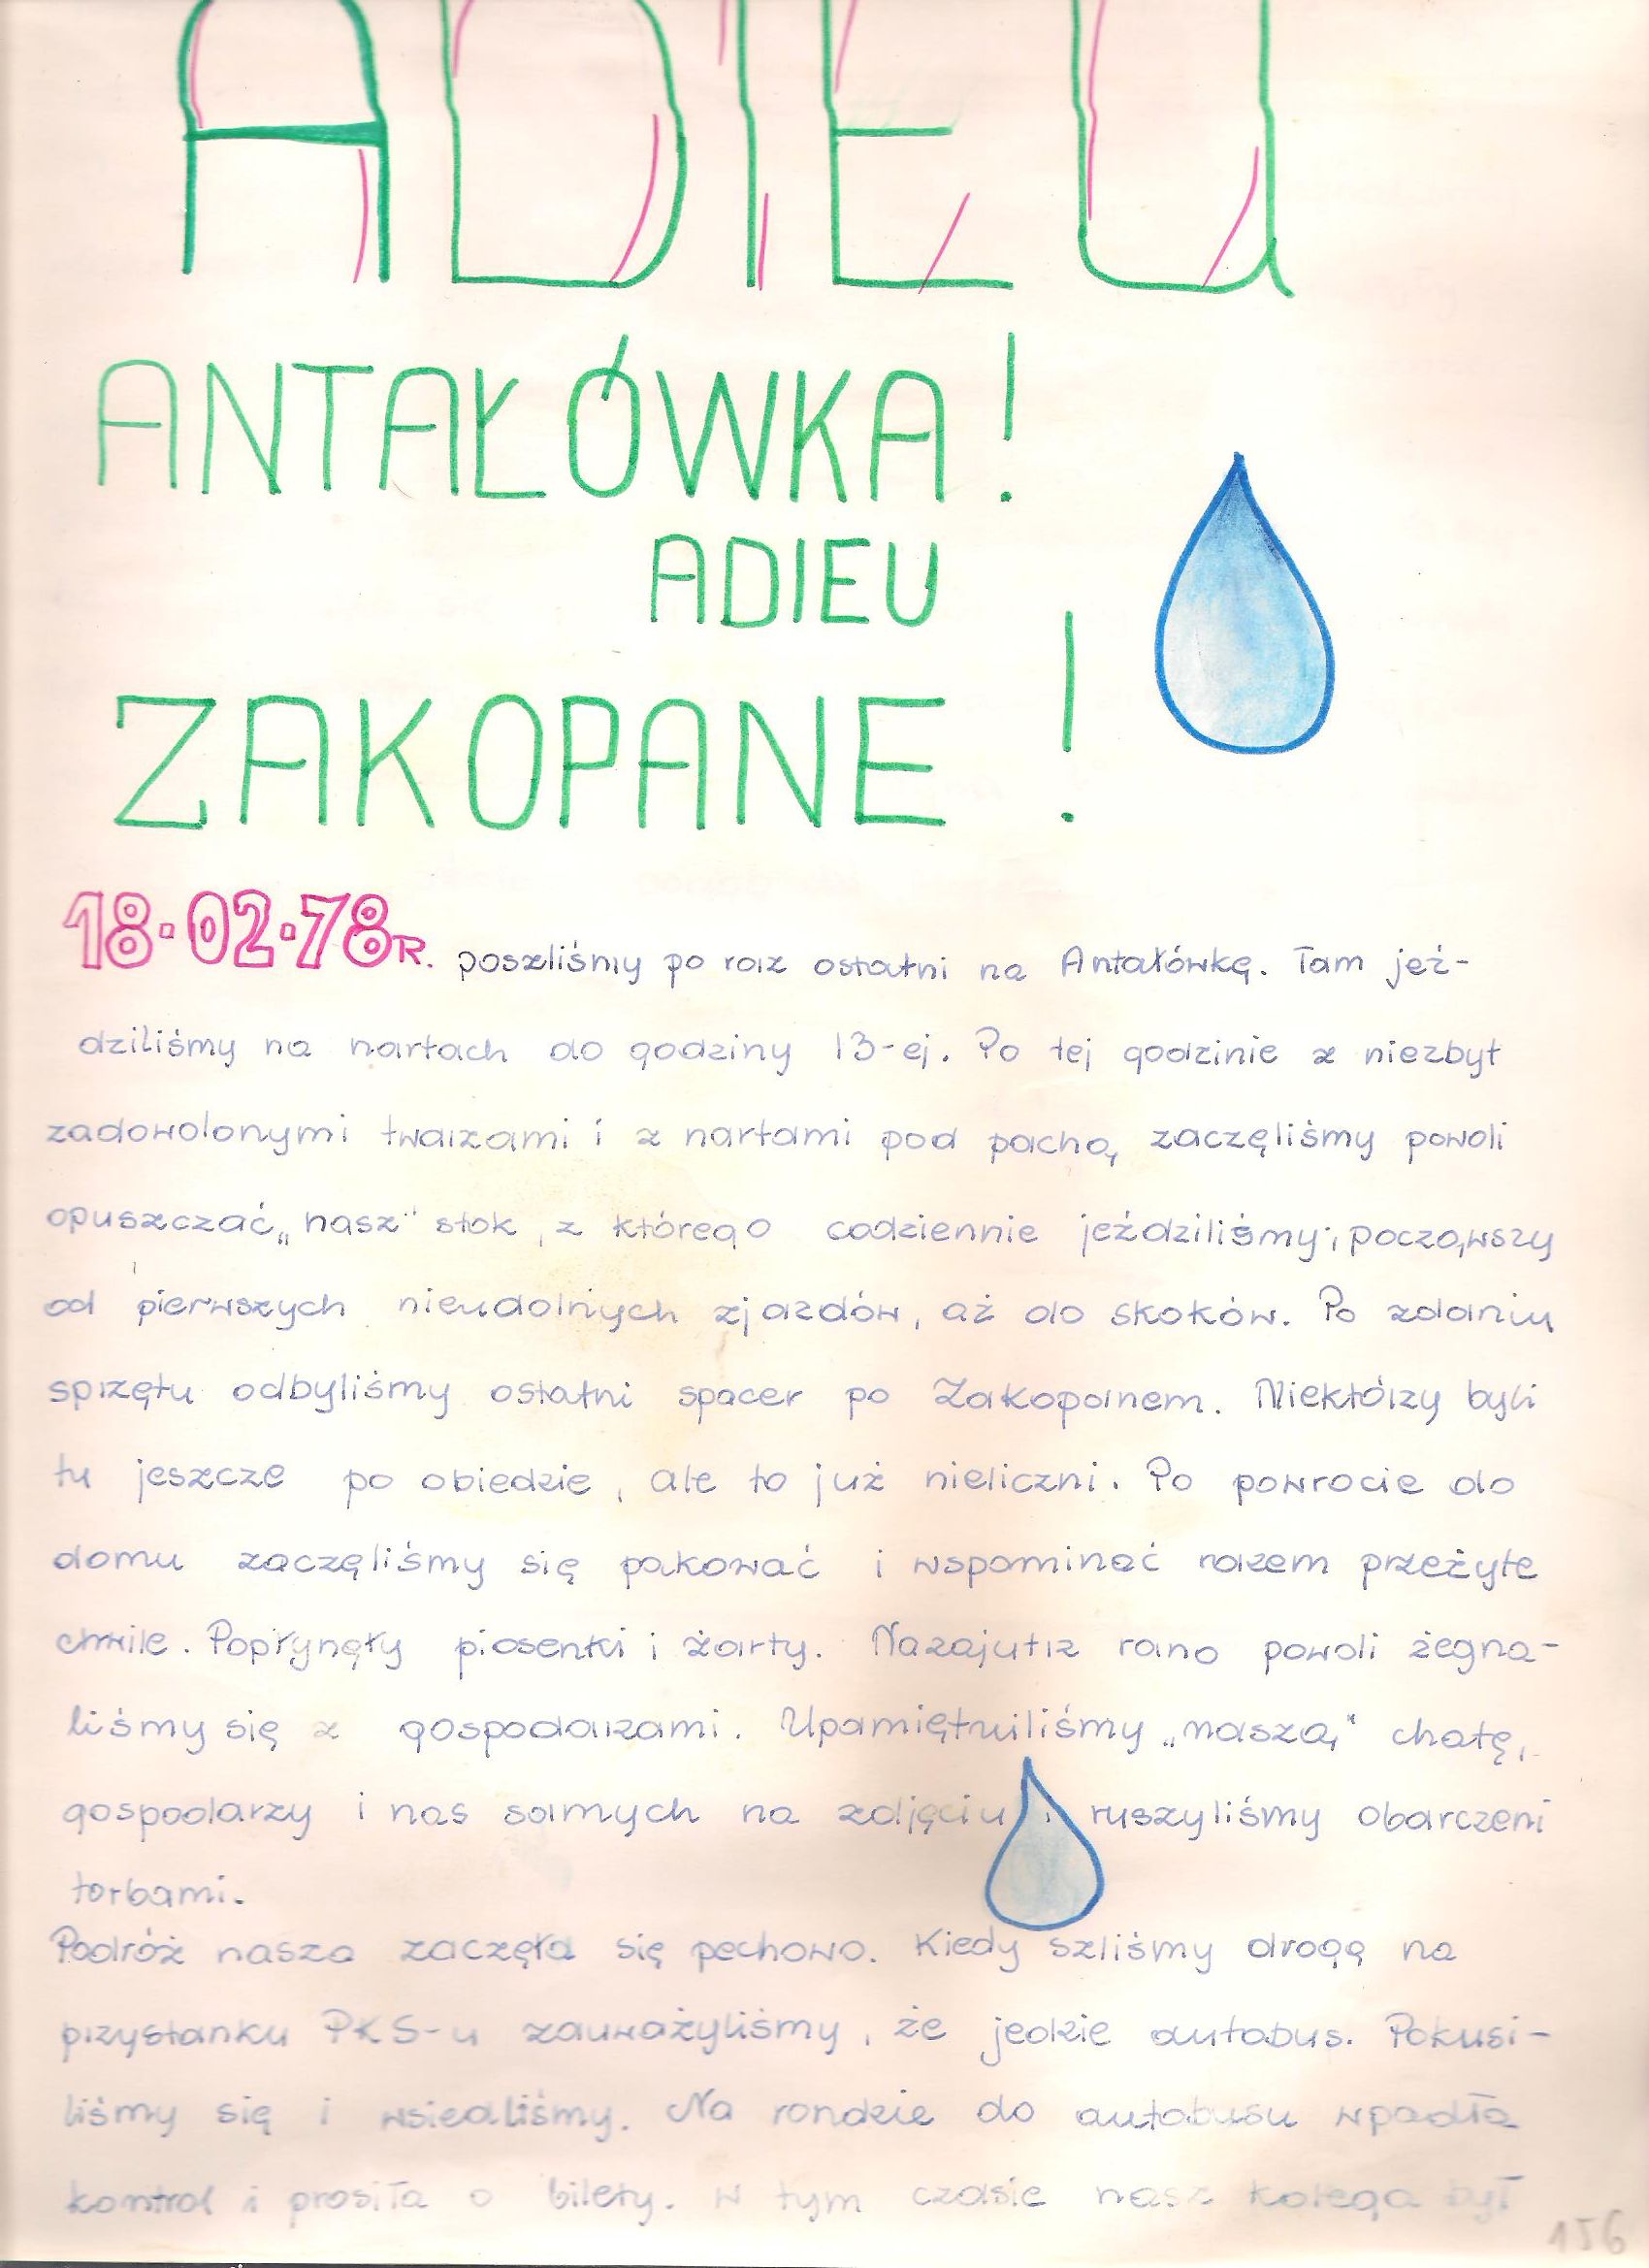 ADIEU
ANTAŁÓWKA!
ADIEU
ZAKOPANE !
18.02.78r. poszliśmy po raz ostatni na Antałówkę. Tam jeź-
dziliśmy na nartach do godziny 13-ej. Po tej godzinie z niezbyt
zadowolonymi twarzami i z nartami pod pachą, zaczęliśmy powoli
opuszczać „nasz" stok, z którego codziennie jeździliśmy, począwszy
od pierwszych nieudolnych zjazdów, aż do skoków. Po zdaniu
sprzętu odbyliśmy ostatni spacer po Zakopanem. Niektórzy byli
tu jeszcze po obiedzie, ale to już nieliczni. Po powrocie do
domu zaczęliśmy się pakować i wspominać razem przeżyte
chwile. Popłynęły piosenki i żarty. Nazajutrz rano powoli żegna-
liśmy się z gospodarzami. Upamiętniliśmy „naszą" chatę,
gospodarzy i nas samych na zdjęciu i ruszyliśmy obarczeni
torbami.
Podróż nasza zaczęła się pechowo. Kiedy szliśmy drogą na
przystanku PKS-u zauważyliśmy, że jedzie autobus. Pokusi-
liśmy się i wsiedliśmy. Na rondzie do autobusu wpadła
kontrol i prosiła o bilety. W tym czasie nasz kolega był
156